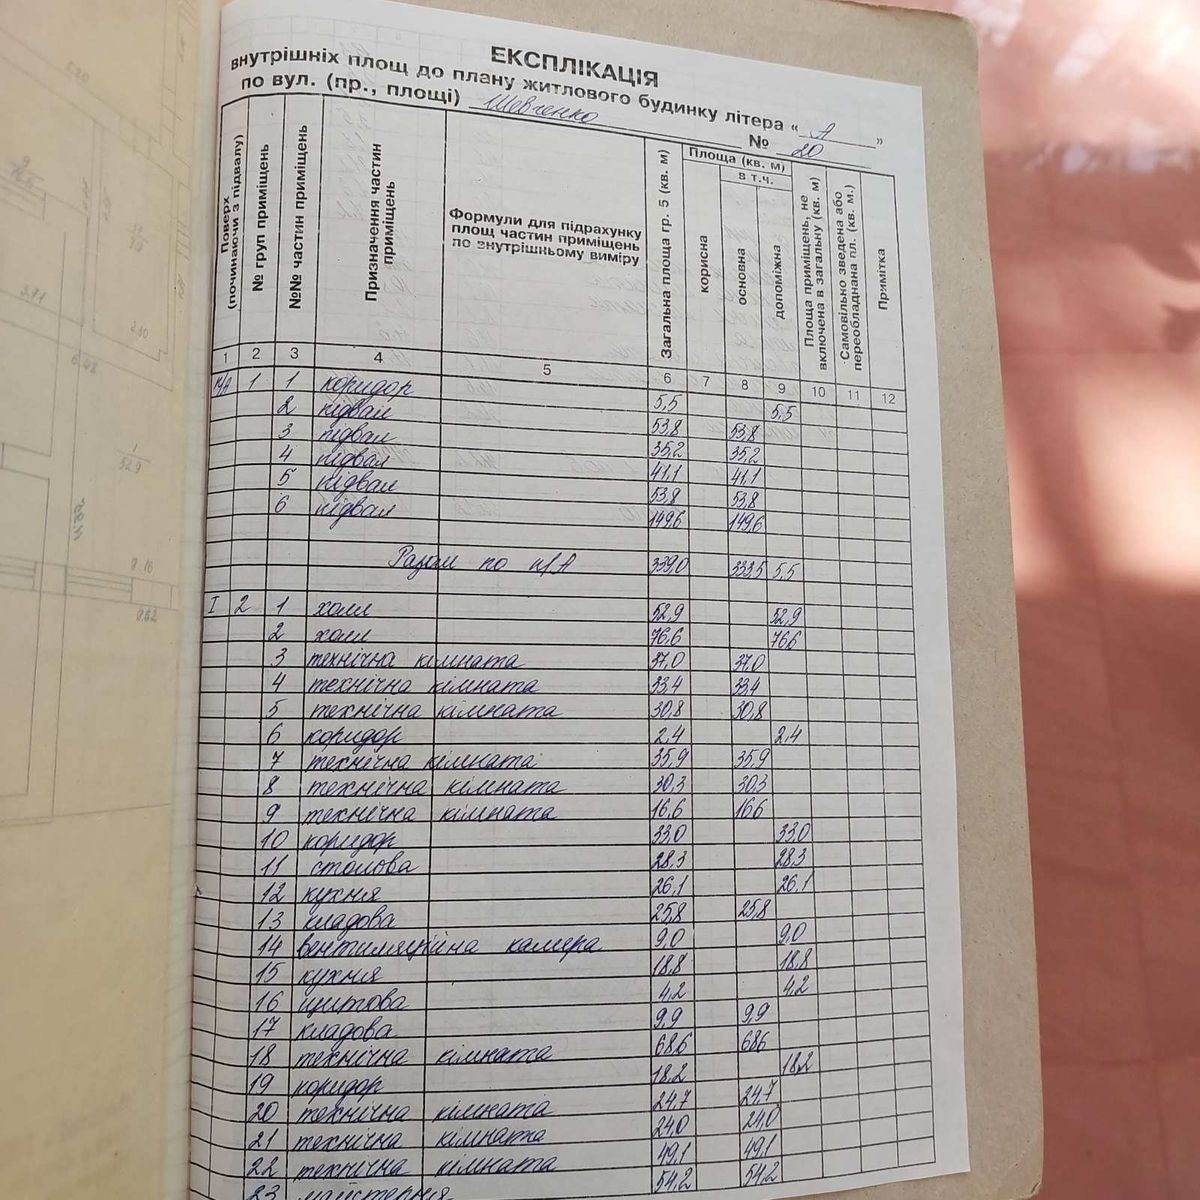 ЕКСПЛІКАЦІЯ
внутрішніх площ до плану житлового будинку літера " А "
по вул. (пр., площі) Шевченко № 20
Поверх (починаючи з підвалу)
№ груп приміщень
№№ частин приміщень
Призначення частин приміщень
Формули для підрахунку площ частин приміщень по внутрішньому виміру
Загальна площа гр. 5 (кв. м)
Площа (кв. м)
в т.ч.
корисна
основна
допоміжна
Площа приміщень, не включена в загальну (кв. м)
Самовільно зведена або переобладнана пл. (кв. м.)
Примітка
1 2 3 4 5 6 7 8 9 10 11 12
п/А 1 1 коридор 5,5 5,5
2 підвал 53,8 53,8
3 підвал 35,2 35,2
4 підвал 41,1 41,1
5 підвал 53,8 53,8
6 підвал 149,6 149,6
Разом по п/А 339,0 333,5 5,5
I 2 1 холл 52,9 52,9
2 холл 76,6 76,6
3 технічна кімната 37,0 37,0
4 технічна кімната 33,4 33,4
5 технічна кімната 30,8 30,8
6 коридор 2,4 2,4
7 технічна кімната 35,9 35,9
8 технічна кімната 30,3 30,3
9 технічна кімната 16,6 16,6
10 коридор 33,0 33,0
11 столова 28,3 28,3
12 кухня 26,1 26,1
13 кладова 25,8 25,8
14 вентиляційна камера 9,0 9,0
15 кухня 18,8 18,8
16 щитова 4,2 4,2
17 кладова 9,9 9,9
18 технічна кімната 68,6 68,6
19 коридор 18,2 18,2
20 технічна кімната 24,7 24,7
21 технічна кімната 24,0 24,0
22 технічна кімната 49,1 49,1
23 майстерня 54,2 54,2
5.20
3.71
6.48
2.30
1
52.9
8.16